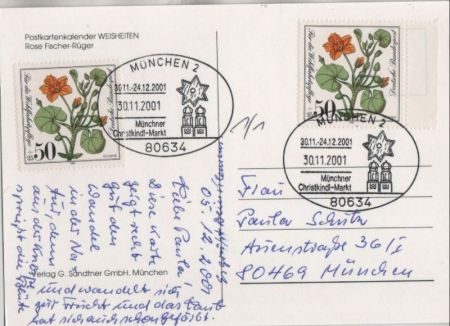 Postkartenkalender WEISHEITEN
Rose Fischer-Rüger
Für die Wohlfahrtspflege
Deutsche Bundespost
50
MÜNCHEN 2
30.11.-24.12.2001
30.11.2001
Münchner
Christkindl-Markt
80634
Für die Wohlfahrtspflege
Deutsche Bundespost
50
MÜNCHEN 2
30.11.-24.12.2001
30.11.2001
Münchner
Christkindl-Markt
80634
1/1
05.12.2001
Liebe Paula!
Diese Karte
zeigt recht
gut den
Wandel
in der Na-
tur, denn
aus der
die Blüte
und wandelt sich
zur Frucht und das Laub
hat sich auch schon gefärbt.
Verlag G. Sandtner GmbH. München
Frau
Paula
36/I
80469 München